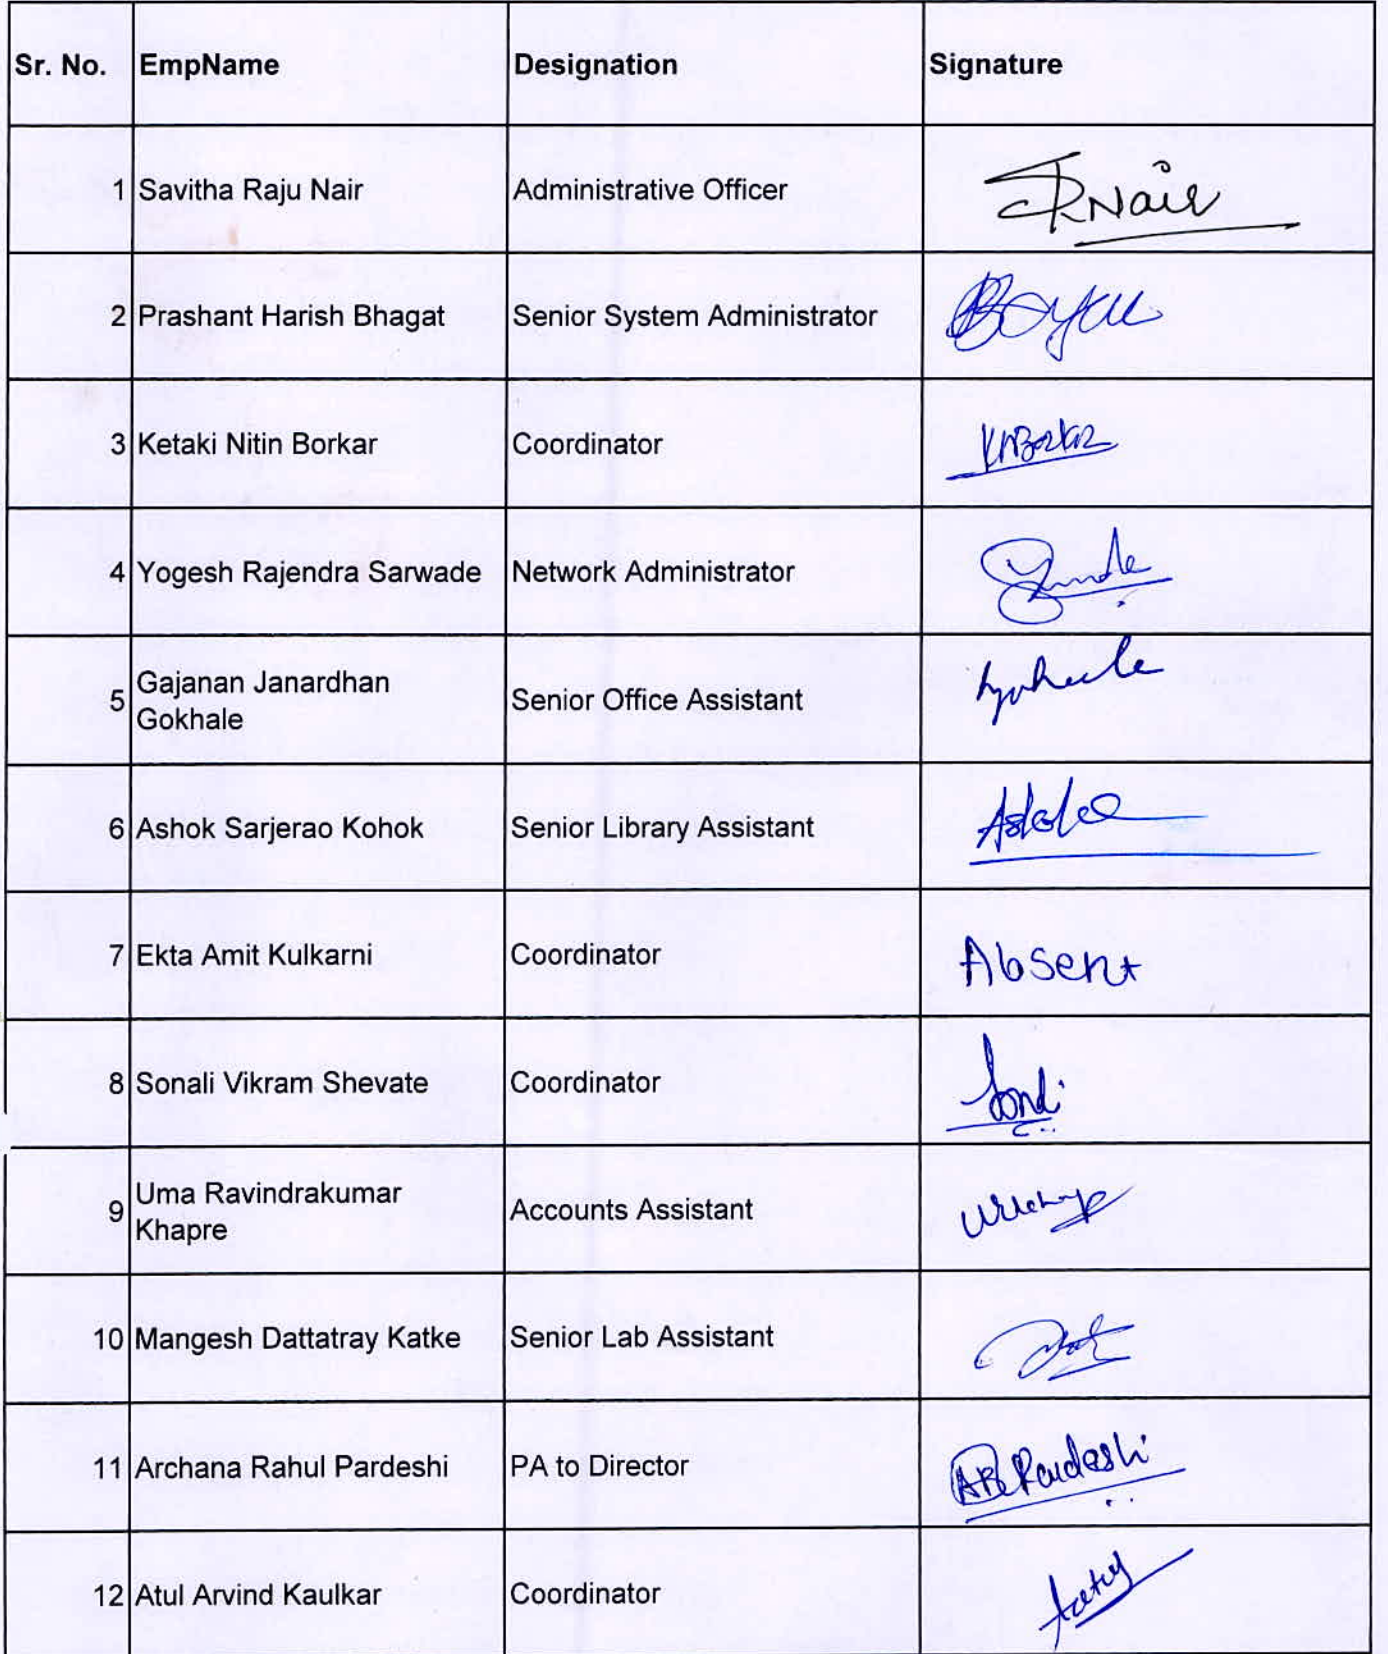 Sr. No. EmpName Designation Signature
1 Savitha Raju Nair Administrative Officer SRNair
2 Prashant Harish Bhagat Senior System Administrator
3 Ketaki Nitin Borkar Coordinator KNBorkar
4 Yogesh Rajendra Sarwade Network Administrator
5 Gajanan Janardhan
Gokhale Senior Office Assistant
6 Ashok Sarjerao Kohok Senior Library Assistant
7 Ekta Amit Kulkarni Coordinator Absent
8 Sonali Vikram Shevate Coordinator
9 Uma Ravindrakumar
Khapre Accounts Assistant
10 Mangesh Dattatray Katke Senior Lab Assistant
11 Archana Rahul Pardeshi PA to Director Pardeshi
12 Atul Arvind Kaulkar Coordinator